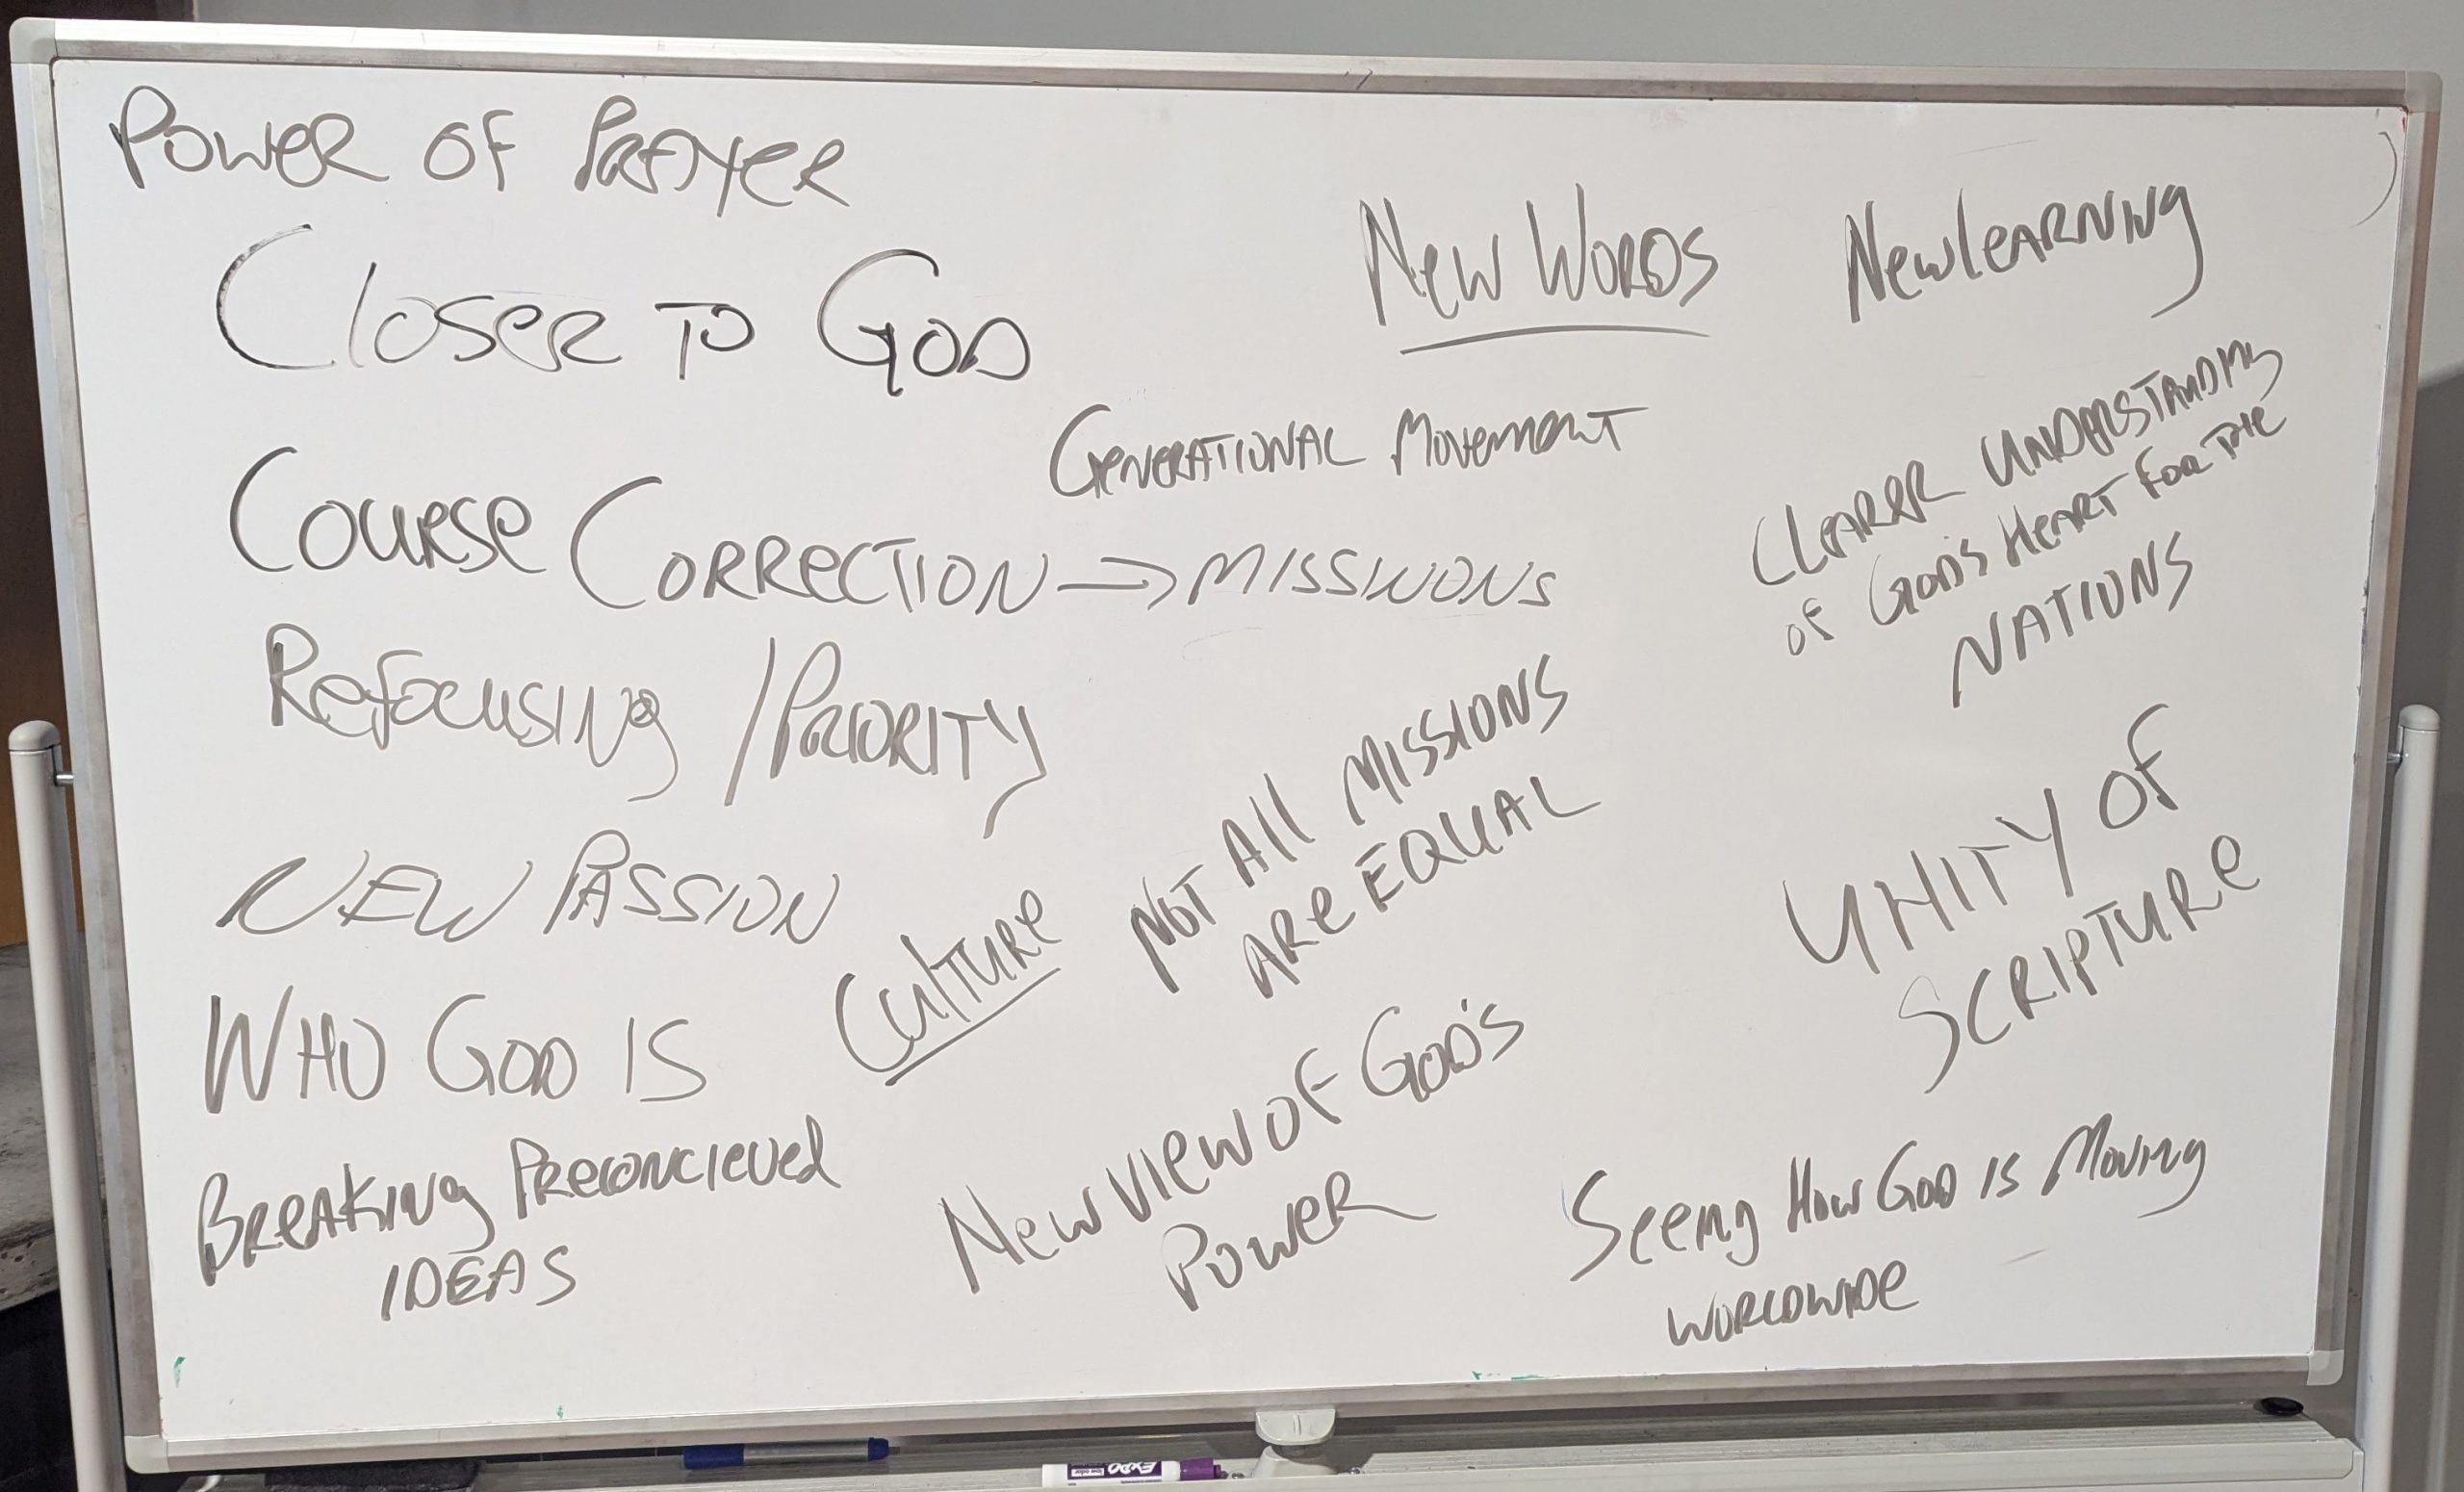 Power of Prayer
Closer to God
Course Correction → Missions
Refocusing / Priority
New Passion
Who God is
Breaking Preconcieved
Ideas
New Words
New learning
Generational Movement
Clearer Understanding
of God's Heart for the
Nations
Not All Missions
Are Equal
Culture
Unity of
Scripture
New View of God's
Power
Seeing How God is Moving
Worldwide
EXPO
low odor